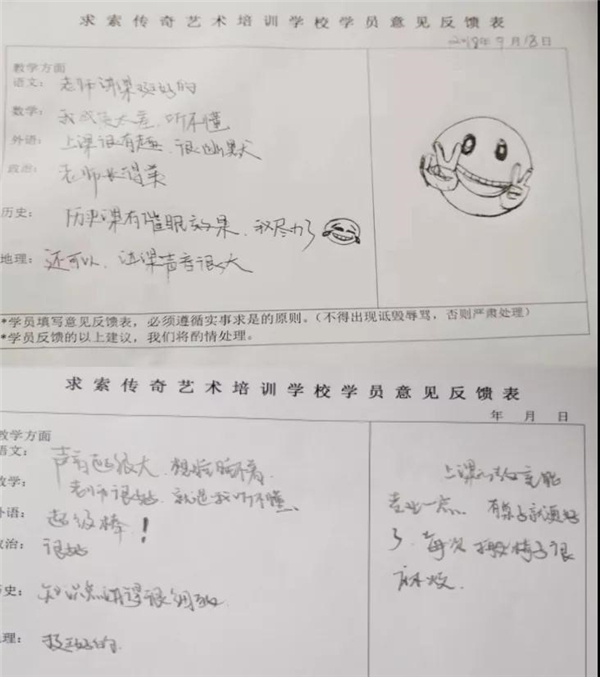 求索传奇艺术培训学校学员意见反馈表
2018年9月13日
教学方面
语文：老师讲课挺好的
数学：我或是太差，听不懂
外语：上课很有趣、很幽默
政治：老师长得美
历史：历史课有催眠效果，我尽力了
地理：还可以，讲课声音很大
*学员填写意见反馈表，必须遵循实事求是的原则。（不得出现诋毁辱骂，否则严肃处理）
*学员反馈的以上建议，我们将酌情处理。
求索传奇艺术培训学校学员意见反馈表
年 月 日
教学方面
语文：声音超级大，想睡睡不着
数学：老师很好，就是我听不懂、
外语：超级棒！
政治：很好
历史：知识点讲得很细致
地理：挺好的
上课
专业一点 有桌子就更好
了、每次搬椅子很
麻烦